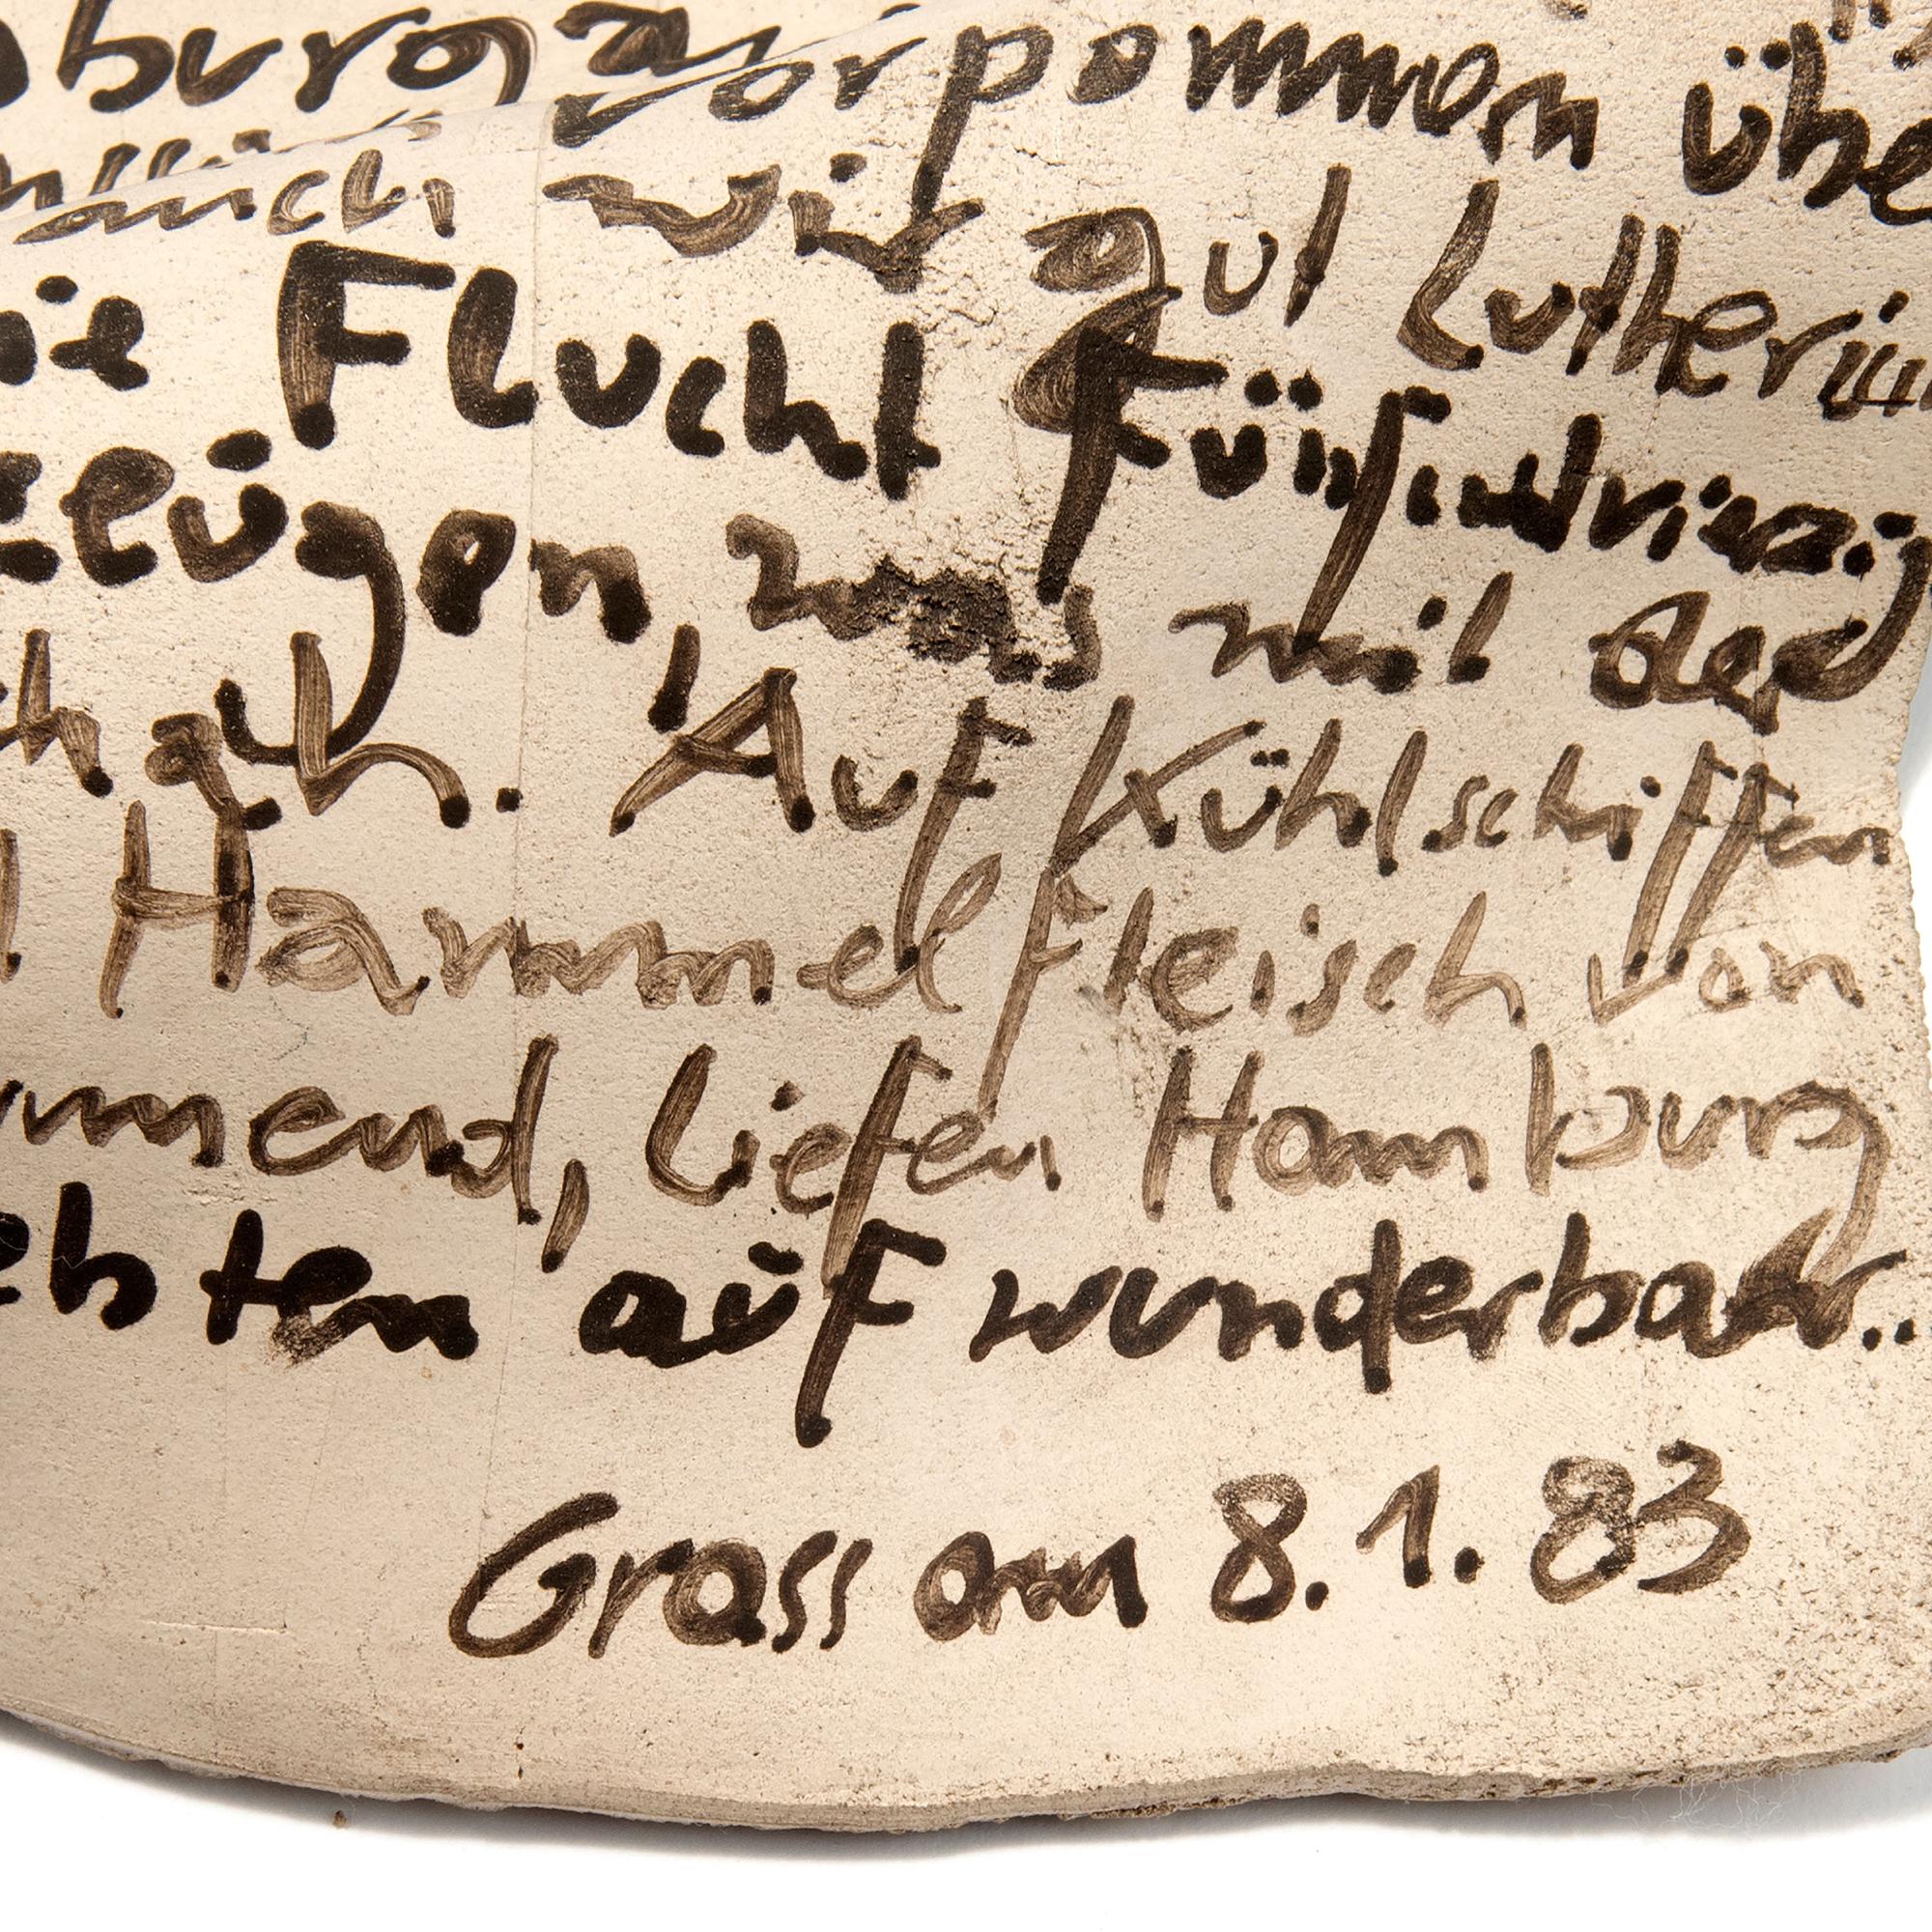 burg
Vorpommern übe
wir auf Lutherin
ie Flucht fünfundvierzig
zeugen, was mit der
Auf Kühlschiffen
Hammelfleisch von
mmend, liefen Hamburg
ebten auf wunderbar..
Grass am 8.1.83